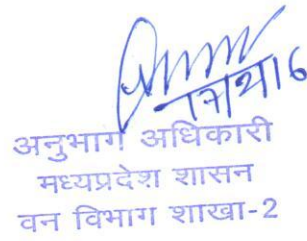 अनुभाग अधिकारी
मध्यप्रदेश शासन
वन विभाग शाखा-2